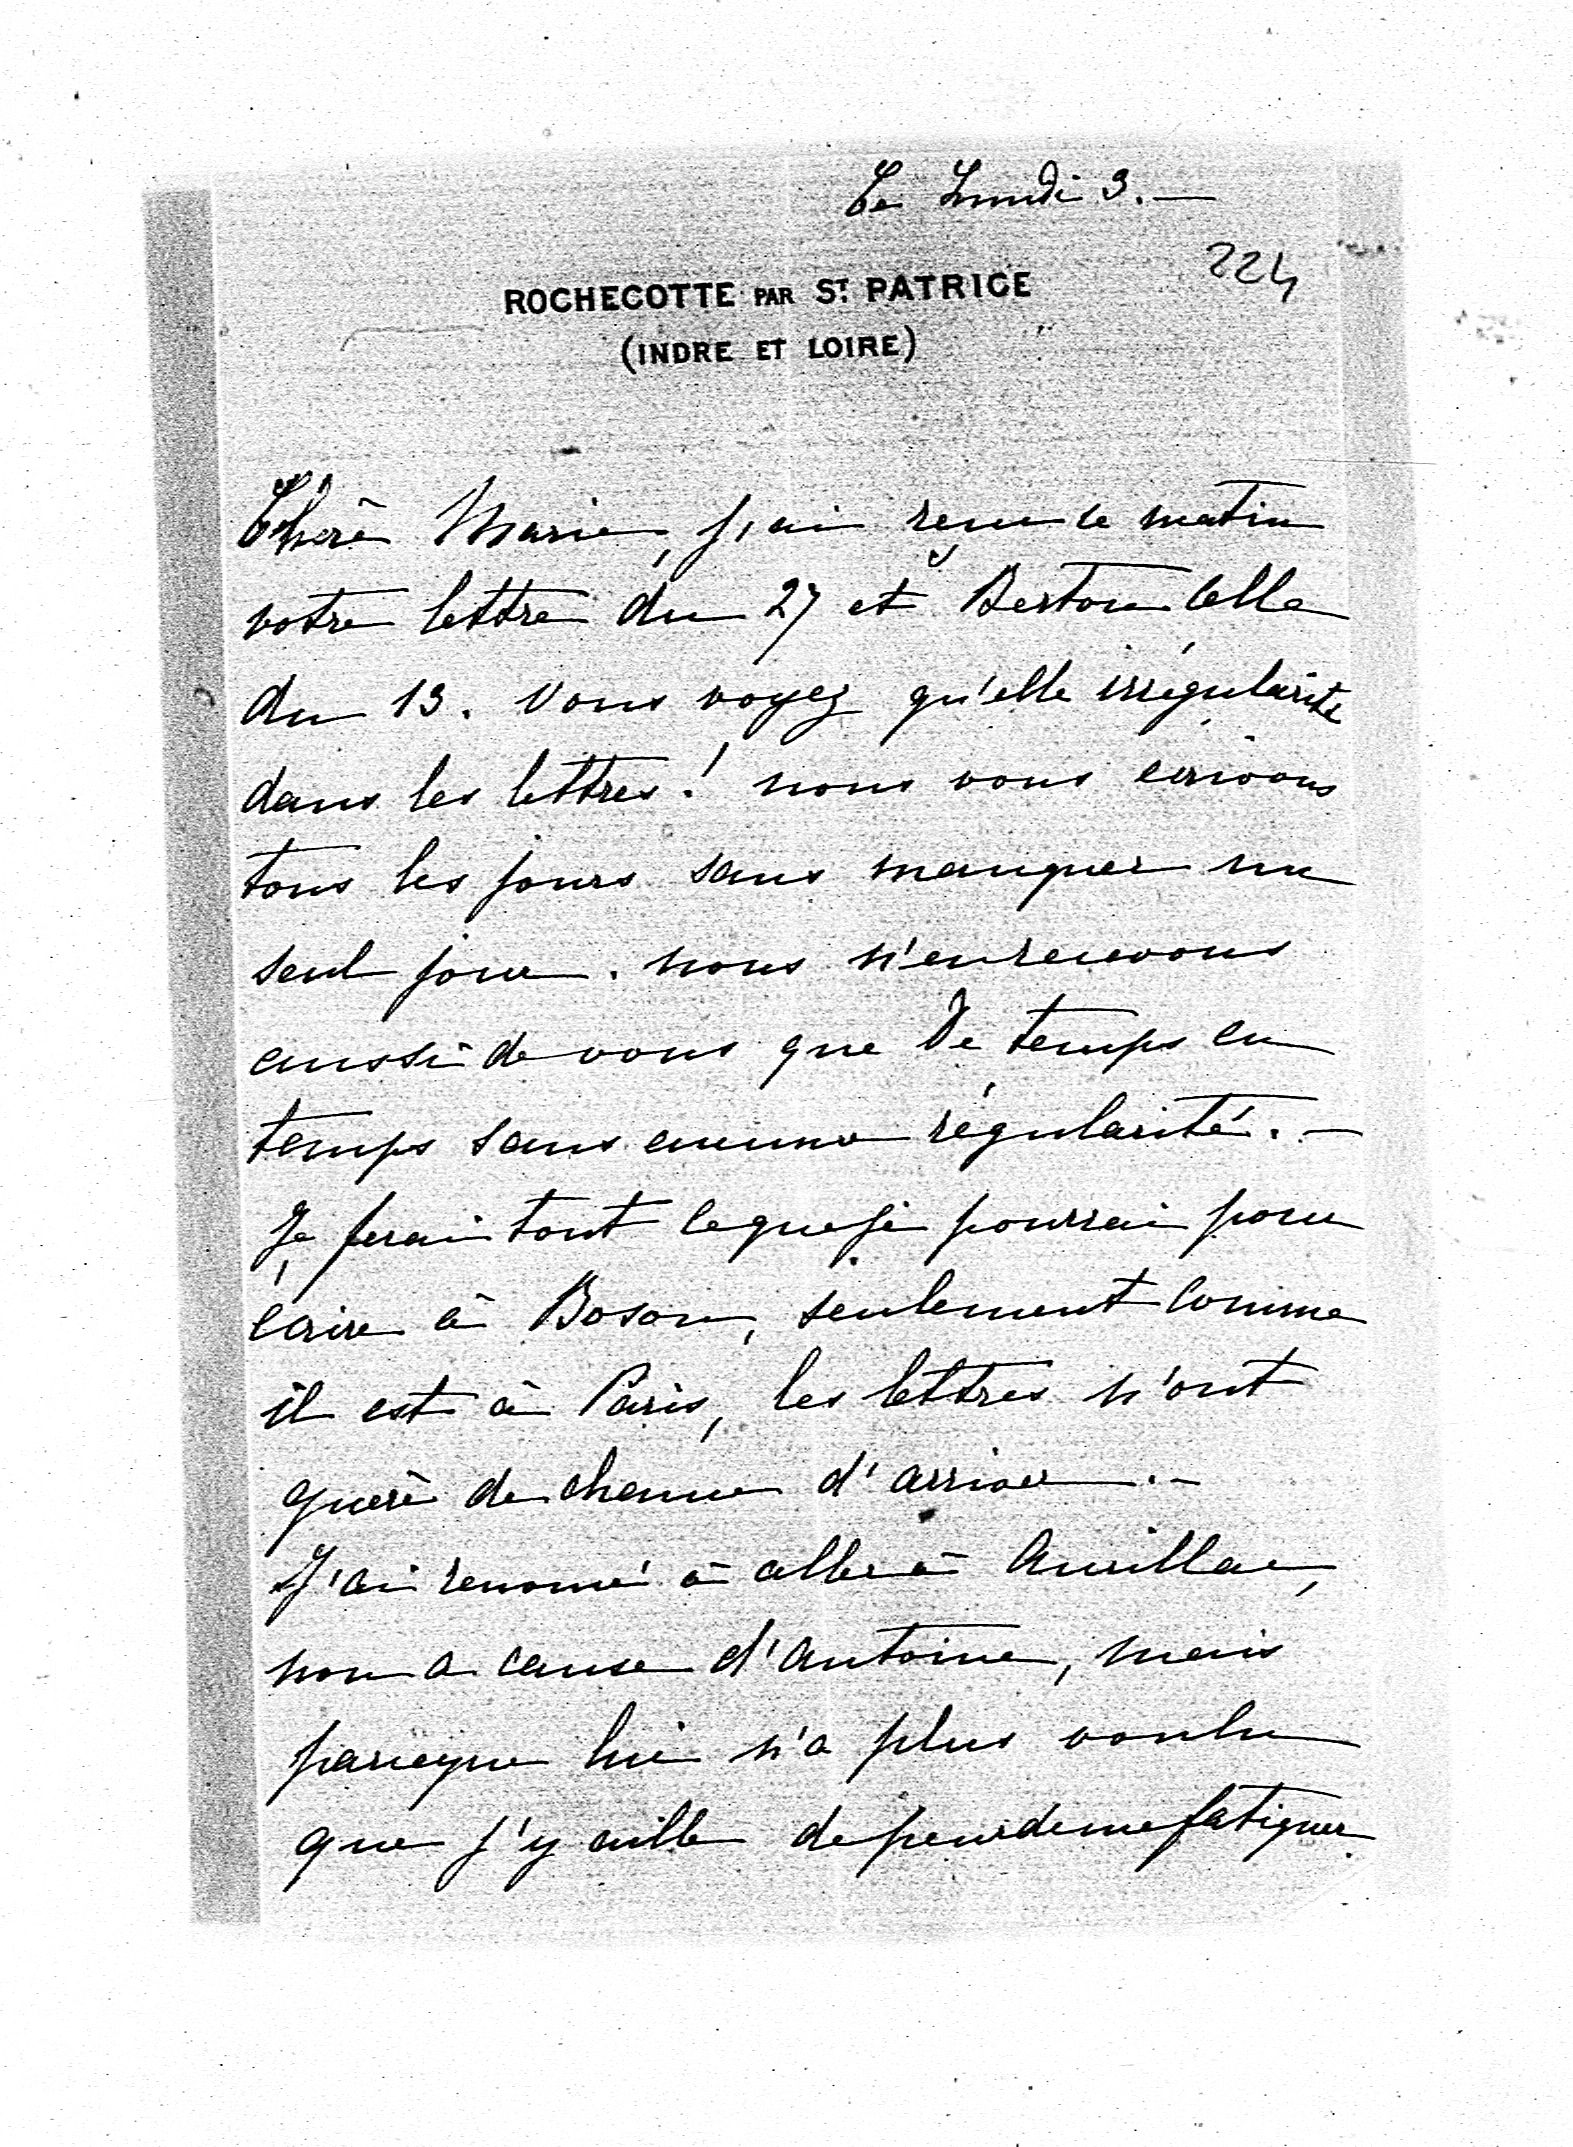 Ce Lundi 3. —
224
ROCHECOTTE PAR ST. PATRICE
(INDRE ET LOIRE)
Chère Marie, j'ai reçu ce matin
votre lettre du 27 et Berton celle
du 13. Vous voyez qu'elle irrégularité
dans les lettres! nous vous écrivons
tous les jours sans manquer un
seul jour. nous n'en recevons
aussi de vous que de temps en
temps sans aucune régularité. —
Je ferai tout ce que je pourrai pour
écrire à Boson, seulement comme
il est à Paris, les lettres n'ont
guère de chance d'arriver. —
J'ai renoncé à aller à Aurillac,
non a cause d'Antoine, mais
parceque lui n'a plus voulu
que j'y aille de peur de me fatiguer.